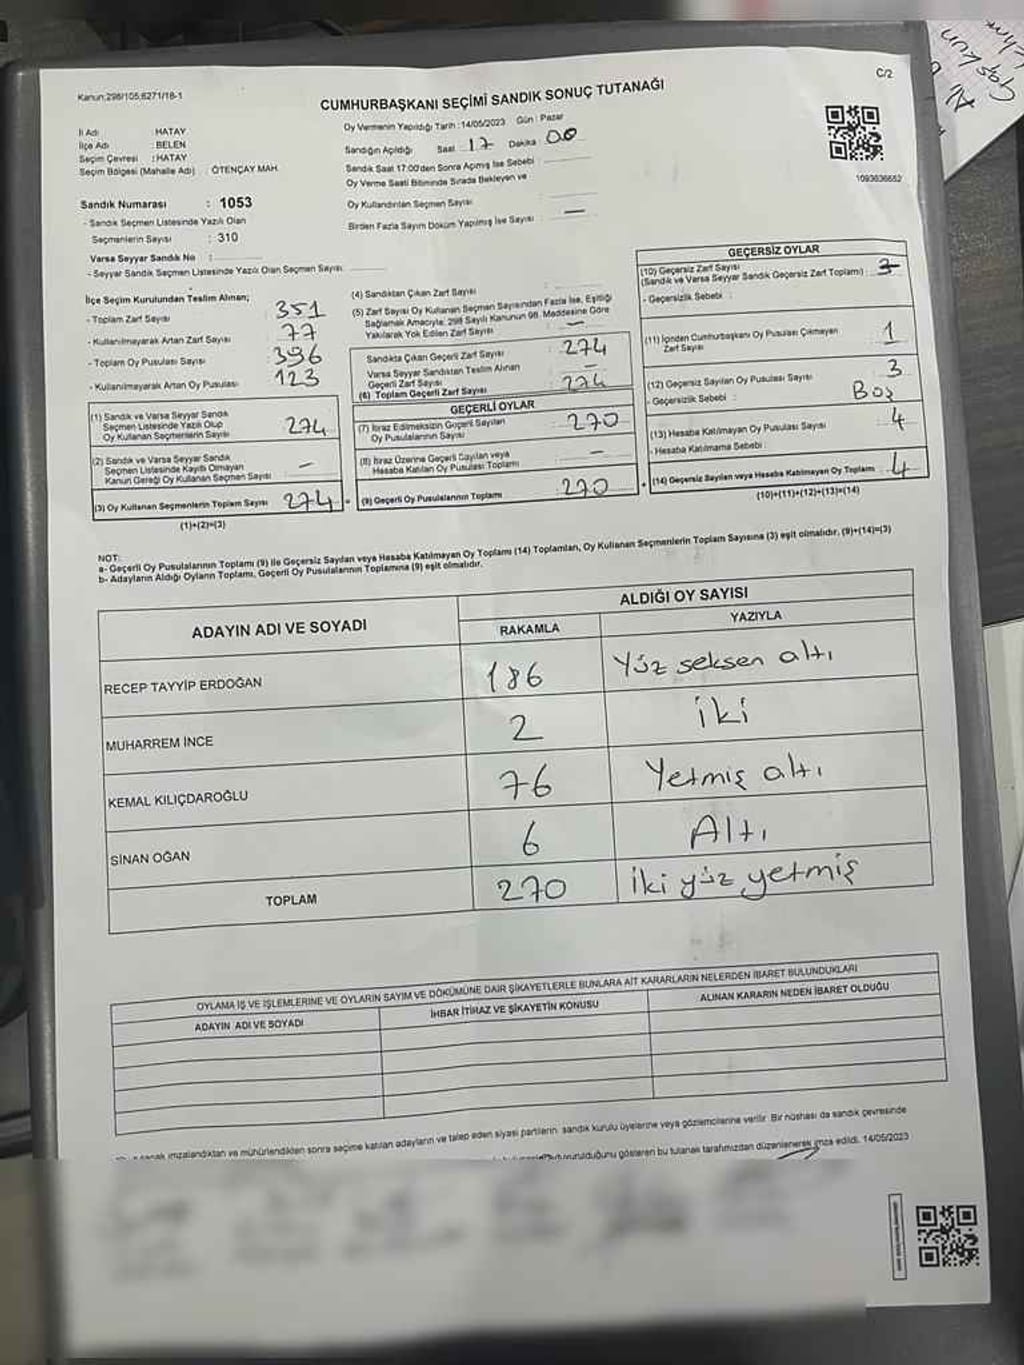 Kanun:298/105,6271/18-1
C/2
CUMHURBAŞKANI SEÇİMİ SANDIK SONUÇ TUTANAĞI
İl Adı : HATAY
İlçe Adı : BELEN
Seçim Çevresi : HATAY
Seçim Bölgesi (Mahalle Adı) : ÖTENÇAY MAH.
Sandık Numarası : 1053
- Sandık Seçmen Listesinde Yazılı Olan
Seçmenlerin Sayısı : 310
Varsa Seyyar Sandık No :
- Seyyar Sandık Seçmen Listesinde Yazılı Olan Seçmen Sayısı:
Oy Vermenin Yapıldığı Tarih :14/05/2023 Gün : Pazar
Sandığın Açıldığı Saat 17 Dakika 00
Sandık Saat 17:00'den Sonra Açımış İse Sebebi :
Oy Verme Saati Bitiminde Sırada Bekleyen ve
Oy Kullandırılan Seçmen Sayısı
Birden Fazla Sayım Döküm Yapılmış İse Sayısı : —
1093636652
İlçe Seçim Kurulundan Teslim Alınan;
- Toplam Zarf Sayısı 351
- Kullanılmayarak Artan Zarf Sayısı 77
- Toplam Oy Pusulası Sayısı 396
- Kullanılmayarak Artan Oy Pusulası 123
(1) Sandık ve Varsa Seyyar Sandık
Seçmen Listesinde Yazılı Olup
Oy Kullanan Seçmenlerin Sayısı 274
(2) Sandık ve Varsa Seyyar Sandık
Seçmen Listesinde Kayıtlı Olmayan
Kanun Gereği Oy Kullanan Seçmen Sayısı : —
(3) Oy Kullanan Seçmenlerin Toplam Sayısı 274
(1)+(2)=(3)
(4) Sandıktan Çıkan Zarf Sayısı
(5) Zarf Sayısı Oy Kullanan Seçmen Sayısından Fazla İse, Eşitliği
Sağlamak Amacıyla; 298 Sayılı Kanunun 98. Maddesine Göre
Yakılarak Yok Edilen Zarf Sayısı : —
Sandıkta Çıkan Geçerli Zarf Sayısı 274
Varsa Seyyar Sandıktan Teslim Alınan
Geçerli Zarf Sayısı —
(6) Toplam Geçerli Zarf Sayısı 274
GEÇERLİ OYLAR
(7) İtiraz Edilmeksizin Geçerli Sayılan
Oy Pusulalarının Sayısı 270
(8) İtiraz Üzerine Geçerli Sayılan veya
Hesaba Katılan Oy Pusulası Toplamı : —
(9) Geçerli Oy Pusulalarının Toplamı 270
GEÇERSİZ OYLAR
(10) Geçersiz Zarf Sayısı
(Sandık ve Varsa Seyyar Sandık Geçersiz Zarf Toplamı) :
- Geçersizlik Sebebi :
(11) İçinden Cumhurbaşkanı Oy Pusulası Çıkmayan
Zarf Sayısı 1
(12) Geçersiz Sayılan Oy Pusulası Sayısı 3
- Geçersizlik Sebebi : Boş
(13) Hesaba Katılmayan Oy Pusulası Sayısı 4
- Hesaba Katılmama Sebebi :
(14) Geçersiz Sayılan veya Hesaba Katılmayan Oy Toplamı 4
(10)+(11)+(12)+(13)=(14)
NOT:
a- Geçerli Oy Pusulalarının Toplamı (9) ile Geçersiz Sayılan veya Hesaba Katılmayan Oy Toplamı (14) Toplamları, Oy Kullanan Seçmenlerin Toplam Sayısına (3) eşit olmalıdır. (9)+(14)=(3)
b- Adayların Aldığı Oyların Toplamı, Geçerli Oy Pusulalarının Toplamına (9) eşit olmalıdır.
ADAYIN ADI VE SOYADI
ALDIĞI OY SAYISI
RAKAMLA YAZIYLA
RECEP TAYYİP ERDOĞAN 186 Yüz seksen altı
MUHARREM İNCE 2 iki
KEMAL KILIÇDAROĞLU 76 Yetmiş altı
SİNAN OĞAN 6 Altı
TOPLAM 270 İki yüz yetmiş
OYLAMA İŞ VE İŞLEMLERİNE VE OYLARIN SAYIM VE DÖKÜMÜNE DAİR ŞİKAYETLERLE BUNLARA AİT KARARLARIN NELERDEN İBARET BULUNDUKLARI
ADAYIN ADI VE SOYADI İHBAR İTİRAZ VE ŞİKAYETİN KONUSU ALINAN KARARIN NEDEN İBARET OLDUĞU
imzalandıktan ve mühürlendikten sonra seçime katılan adayların ve talep eden siyasi partilerin sandık kurulu üyelerine veya gözlemcilerine verilir. Bir nüshası da sandık çevresinde
gösteren bu tutanak tarafımızdan düzenlenerek imza edildi. 14/05/2023